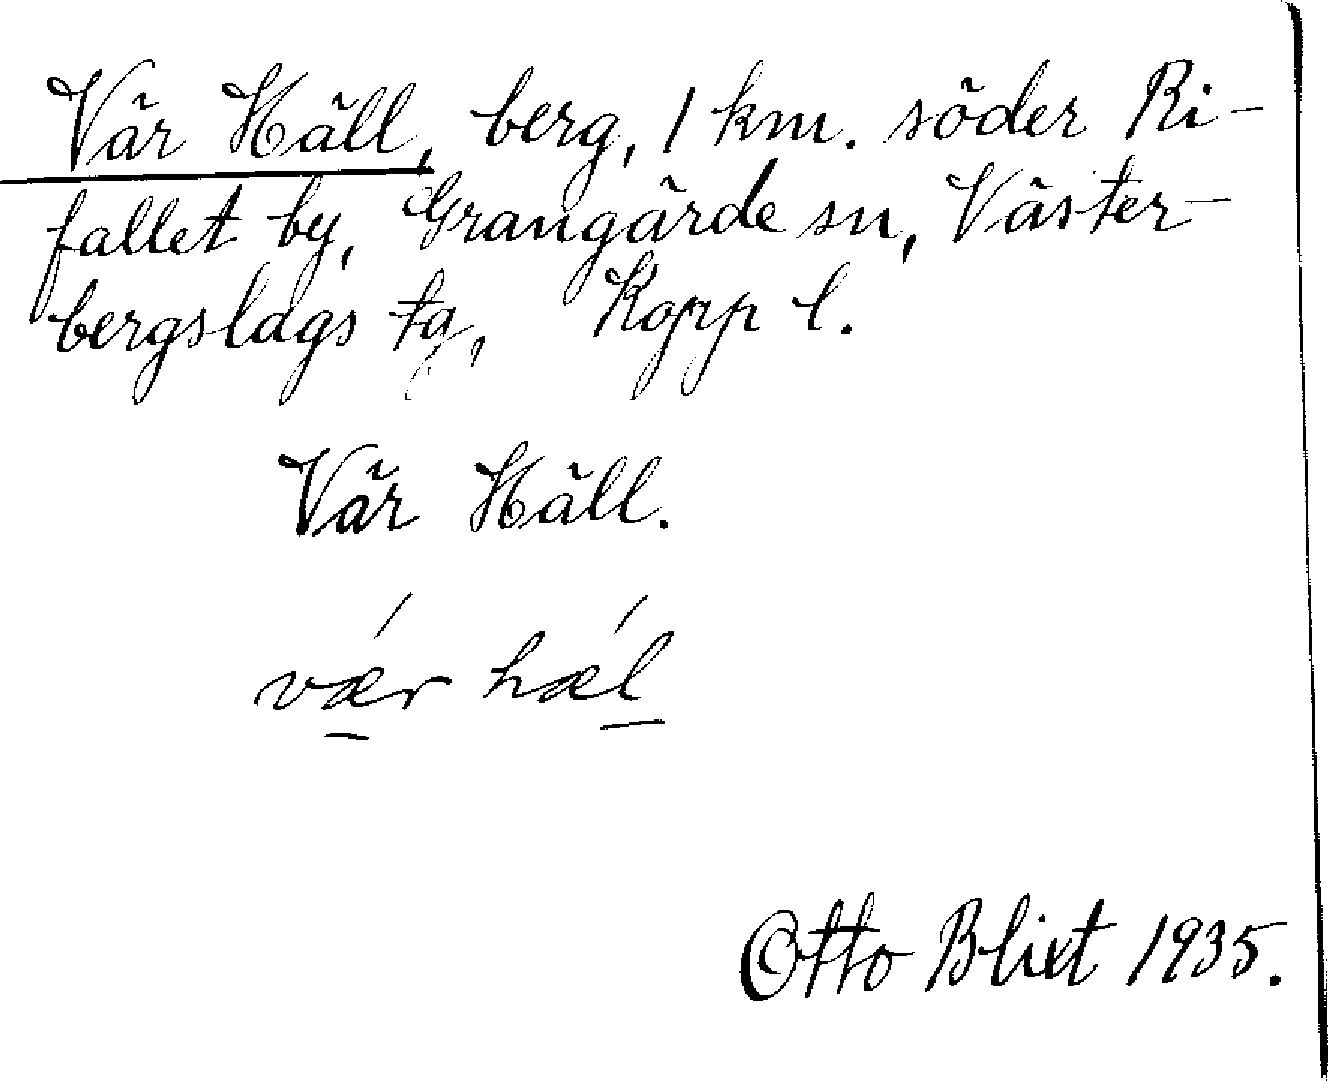 Vär Häll, berg, 1 km. söder Ri-
fallet by, Grangärde sn, Väster-
bergslags tg, Kopp l.
Vär Häll.
vær hæl
Otto Blixt 1935.